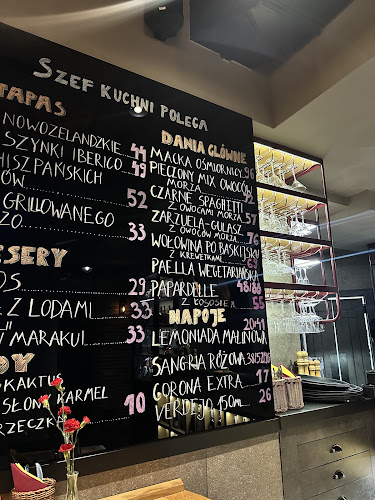 SZEF KUCHNI POLECA
TAPAS
NOWOZELANDZKIE 44
SZYNKI IBERICO 49
HISZPAŃSKICH
ÓW 52
GRILLOWANEGO
ZO 33
ESERY
OS 29
E Z LODAMI 33
Y" MARAKUI 33
DY
KAKTUS
SŁONY KARMEL 10
RZECZKA
DANIA GŁÓWNE
MACKA OŚMIORNICY 96
PIECZONY MIX OWOCÓW
MORZA
CZARNE SPAGHETTI
Z OWOCAMI MORZA 57
ZARZUELA-GULASZ
Z OWOCÓW MORZA 76
WOŁOWINA PO BASKIJSKU
Z KREWETKAMI
PAELLA WEGETARIAŃSKA
PAPARDELLE
Z ŁOSOSIEM 55
NAPOJE
LEMONIADA MALINOWA 20/41
SANGRIA RÓŻOWA
CORONA EXTRA 17
VERDEJO 150ML 26